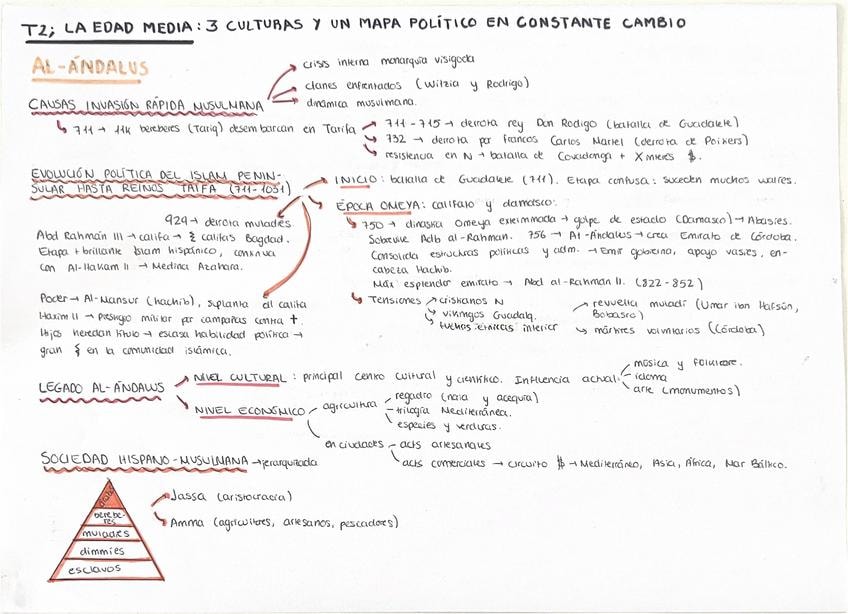 T2; LA EDAD MEDIA: 3 CULTURAS Y UN MAPA POLÍTICO EN CONSTANTE CAMBIO
AL-ÁNDALUS
CAUSAS INVASIÓN RÁPIDA MUSULMANA
crisis interna monarquía visigoda
clanes enfrentados (Witizia y Rodrigo)
dinámica musulmana.
711 → 11k bereberes (Tariq) desembarcan en Tarifa
711-715 → derrota rey Don Rodigo (batalla de Guadalete)
732 → derrota por francos Carlos Martel (derrota de Poitiers)
resistencia en N → batalla de Covadonga + X interés $.
EVOLUCIÓN POLÍTICA DEL ISLAM PENIN-
SULAR HASTA REINOS TAIFA (711-1031)
INICIO: batalla de Guadalete (711). Etapa confusa: suceden muchos walíes.
ÉPOCA OMEYA: califato y damasco:
750 → dinastía Omeya exterminada → golpe de estado (Damasco) → Abasíes.
Sobrevive Adb al-Rahman. 756 → Al-Ándalus → crea Emirato de Córdoba.
Consolida estructuras políticas y adm. → Emir gobierna, apoyo vasíes, en-
cabeza Hachib.
Máx esplendor emirato → Abd al-Rahman II. (822-852)
Tensiones
cristianos N
vikingos Guadalq.
luchas étnicas interior
revuelta muladí (Umar ibn Hafsún,
Bobastro)
mártires voluntarios (Córdoba)
929 → derrota muladíes
Abd Rahmán III → califa → ≠ califas Bagdad.
Etapa + brillante Islam hispánico, continúa
con Al-Hakam II → Medina Azahara.
Poder → Al-Mansur (hachib), suplanta al califa
Haxim II → prestigio militar por campañas contra +.
Hijos heredan título → escasa habilidad política →
gran en la comunidad islámica.
LEGADO AL-ÁNDALUS
NIVEL CULTURAL: principal centro cultural y científico. Influencia actual
música y folklore.
idioma
arte (monumentos)
NIVEL ECONÓMICO
agricultura
regadío (noria y acequia)
trilogía Mediterránea.
especies y verduras.
en ciudades
acts artesanales
acts comerciales → circuito $ → Mediterráneo, Asia, África, Mar Báltico.
SOCIEDAD HISPANO-MUSULMANA → jerarquizada
árabes
berebe-
res
muladíes
dimmíes
esclavos
Jassa (aristocracia)
Amma (agricultores, artesanos, pescadores)